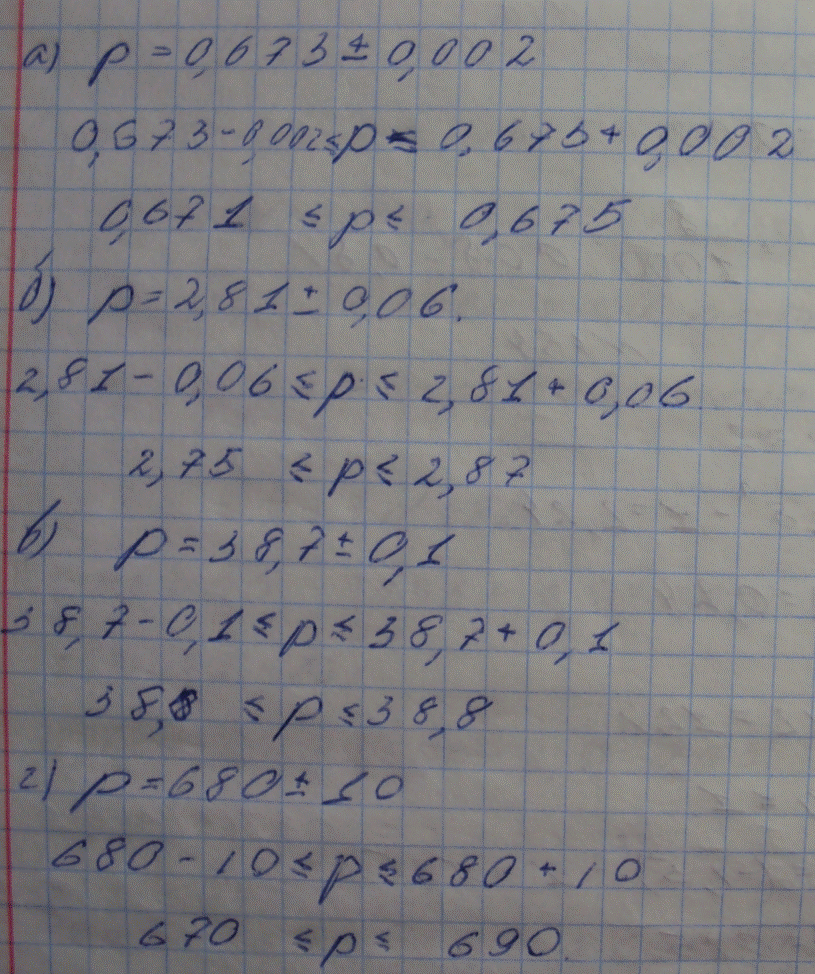 а) p = 0,673 ± 0,002
0,673 - 0,002 ≤ p ≤ 0,673 + 0,002
0,671 ≤ p ≤ 0,675
б) p = 2,81 ± 0,06.
2,81 - 0,06 ≤ p ≤ 2,81 + 0,06.
2,75 ≤ p ≤ 2,87
в) p = 38,7 ± 0,1
38,7 - 0,1 ≤ p ≤ 38,7 + 0,1
≤ p ≤ 38,8
г) p = 680 ± 10
680 - 10 ≤ p ≤ 680 + 10
670 ≤ p ≤ 690.